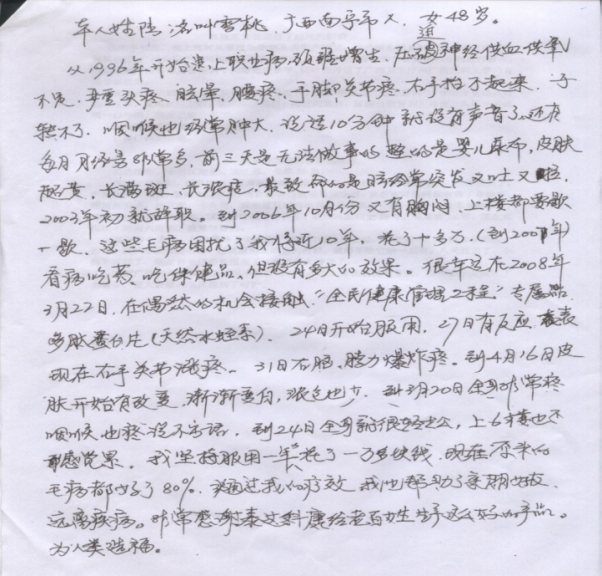 本人姓陆 名叫雪桃,广西南宁市人,女48岁。
从1996年开始患上职业病,颈椎增生,压迫神经供血供氧
不足,严重头疼 眩晕,腰疼,手脚关节疼,右手抬不起来,
转不了,咽喉也经常肿大,说话10分钟就没有声音了。还有
每月月经量非常多,前三天是无法做事的 垫的是婴儿尿布,皮肤
蜡黄,长满斑,长脓疮,最致命的是 经常突发又吐又
2003年初就辞职。到2006年10月份又有胸闷,上楼都需歇
一歇,这些毛病困扰了我将近10年,花了十多万,(到2007年)
看病吃药,吃保健品,但没有多大的效果。很幸运在2008年
3月22日,在偶然的机会接触“全民健康管理工程”专属品
多肽蛋白片(天然水蛭素),24日开始服用,27日有反应,表
现在右手关节涨疼。31日右胳膊 爆炸疼。到4月16日皮
肤开始有改变,渐渐变白,斑也少,到 月20日全身非常疼
咽喉也疼说不出话,到24日全身就很轻松,上6楼也不
感觉累,我坚持服用一年花了一万多块钱,现在原来的
毛病都好了80%,通过我的疗效 我也帮助了亲朋好友,
远离疾病。非常感谢泰达科康给老百姓生产这么好的产品。
为人类造福。